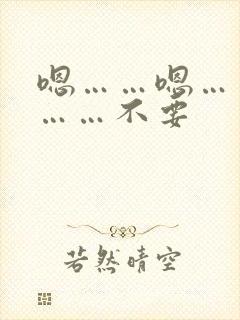 嗯……嗯…
……不要
若然晴空